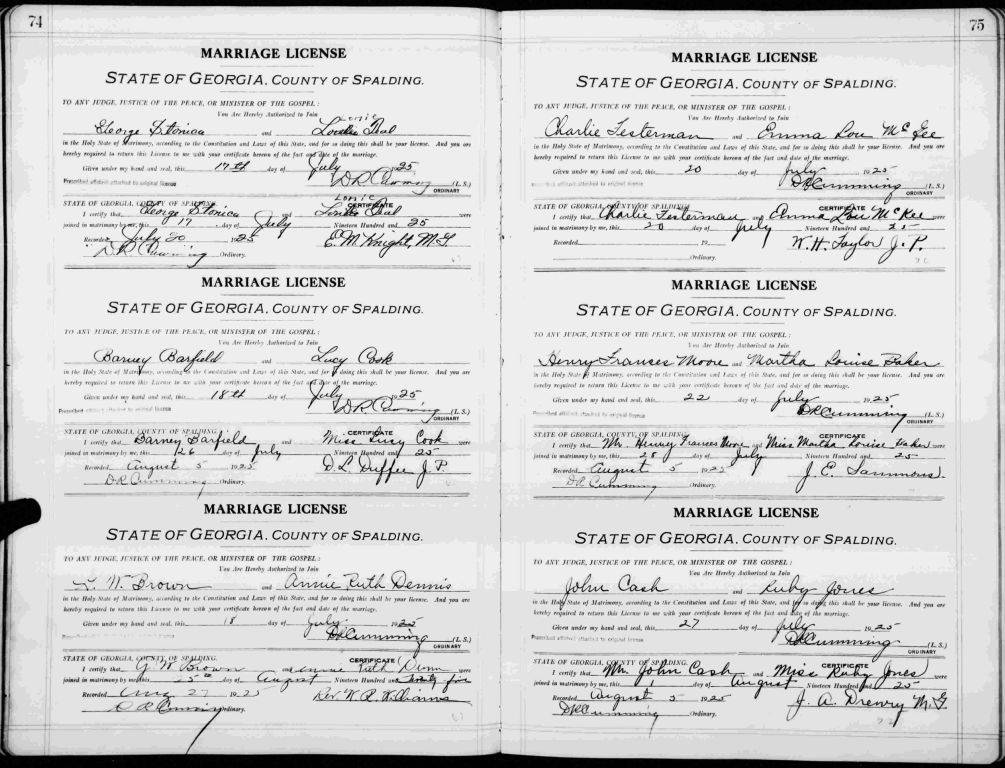 74
MARRIAGE LICENSE
STATE OF GEORGIA, COUNTY OF SPALDING.
TO ANY JUDGE, JUSTICE OF THE PEACE, OR MINISTER OF THE GOSPEL:
You Are Hereby Authorized to Join
Lonie
George Stonica and Beal
in the Holy State of Matrimony, according to the Constitution and Laws of this State, and for so doing this shall be your license. And you are
hereby required to return this License to me with your certificate hereon of the fact and date of the marriage.
Given under my hand and seal, this 17th day of July 1925
Prescribed affidavit attached to original license D R Cumming (L. S.)
ORDINARY
Lonie
CERTIFICATE
STATE OF GEORGIA, COUNTY OF SPALDING.
I certify that George Stonica and Beal were
joined in matrimony by me, this 17 day of July Nineteen Hundred and 25
Recorded July 20 1925 E. M. Knight M. G.
D R Cumming Ordinary.
MARRIAGE LICENSE
STATE OF GEORGIA, COUNTY OF SPALDING.
TO ANY JUDGE, JUSTICE OF THE PEACE, OR MINISTER OF THE GOSPEL:
You Are Hereby Authorized to Join
Barney Barfield and Lucy Cook
in the Holy State of Matrimony, according to the Constitution and Laws of this State, and for so doing this shall be your license. And you are
hereby required to return this License to me with your certificate hereon of the fact and date of the marriage.
Given under my hand and seal, this 18th day of July 1925
Prescribed affidavit attached to original license D R Cumming (L. S.)
ORDINARY
CERTIFICATE
STATE OF GEORGIA, COUNTY OF SPALDING.
I certify that Barney Barfield and Miss Lucy Cook were
joined in matrimony by me, this 26 day of July Nineteen Hundred and 25
Recorded August 5 1925 D. L. Duffee J P
D R Cumming Ordinary.
MARRIAGE LICENSE
STATE OF GEORGIA, COUNTY OF SPALDING.
TO ANY JUDGE, JUSTICE OF THE PEACE, OR MINISTER OF THE GOSPEL:
You Are Hereby Authorized to Join
W. Brown and Annie Ruth Dennis
in the Holy State of Matrimony, according to the Constitution and Laws of this State, and for so doing this shall be your license. And you are
hereby required to return this License to me with your certificate hereon of the fact and date of the marriage.
Given under my hand and seal, this 18 day of July 1925
D R Cumming (L. S.)
ORDINARY
CERTIFICATE
STATE OF GEORGIA, COUNTY OF SPALDING.
I certify that G. W. Brown and Annie Ruth were
joined in matrimony by me, this day of August Nineteen Hundred and twenty five
Recorded Aug 27 1925 Rev. W. R. Williams
D R Cumming Ordinary.
75
MARRIAGE LICENSE
STATE OF GEORGIA, COUNTY OF SPALDING.
TO ANY JUDGE, JUSTICE OF THE PEACE, OR MINISTER OF THE GOSPEL:
You Are Hereby Authorized to Join
Charlie Testerman and Emma Lou McGee
in the Holy State of Matrimony, according to the Constitution and Laws of this State, and for so doing this shall be your license. And you are
hereby required to return this License to me with your certificate hereon of the fact and date of the marriage.
Given under my hand and seal, this 20 day of July 1925
Prescribed affidavit attached to original license D R Cumming (L. S.)
ORDINARY
CERTIFICATE
STATE OF GEORGIA, COUNTY OF SPALDING.
I certify that Charlie Testerman and Emma Lou McKee were
joined in matrimony by me, this 20 day of July Nineteen Hundred and 25
Recorded 19 W. H. Taylor J. P.
Ordinary.
MARRIAGE LICENSE
STATE OF GEORGIA, COUNTY OF SPALDING.
TO ANY JUDGE, JUSTICE OF THE PEACE, OR MINISTER OF THE GOSPEL:
You Are Hereby Authorized to Join
Henry Frances Moore and Martha Louise Baker
in the Holy State of Matrimony, according to the Constitution and Laws of this State, and for so doing this shall be your license. And you are
hereby required to return this License to me with your certificate hereon of the fact and date of the marriage.
Given under my hand and seal, this 22 day of July 1925
Prescribed affidavit attached to original license D R Cumming (L. S.)
ORDINARY
CERTIFICATE
STATE OF GEORGIA, COUNTY OF SPALDING.
I certify that Mr. Henry Frances Moore and Miss Martha Louise Baker were
joined in matrimony by me, this 28 day of July Nineteen Hundred and 25
Recorded August 5 1925 J. E. Sammons.
D R Cumming Ordinary.
MARRIAGE LICENSE
STATE OF GEORGIA, COUNTY OF SPALDING.
TO ANY JUDGE, JUSTICE OF THE PEACE, OR MINISTER OF THE GOSPEL:
You Are Hereby Authorized to Join
John Cash and Ruby Jones
in the Holy State of Matrimony, according to the Constitution and Laws of this State, and for so doing this shall be your license. And you are
hereby required to return this License to me with your certificate hereon of the fact and date of the marriage.
Given under my hand and seal, this 27 day of July 1925
Prescribed affidavit attached to original license D R Cumming (L. S.)
ORDINARY
CERTIFICATE
STATE OF GEORGIA, COUNTY OF SPALDING.
I certify that Mr. John Cash and Miss Ruby Jones were
joined in matrimony by me, this 1 day of August Nineteen Hundred and 25
Recorded August 5 1925 J. A. Drewry M. G.
D R Cumming Ordinary.